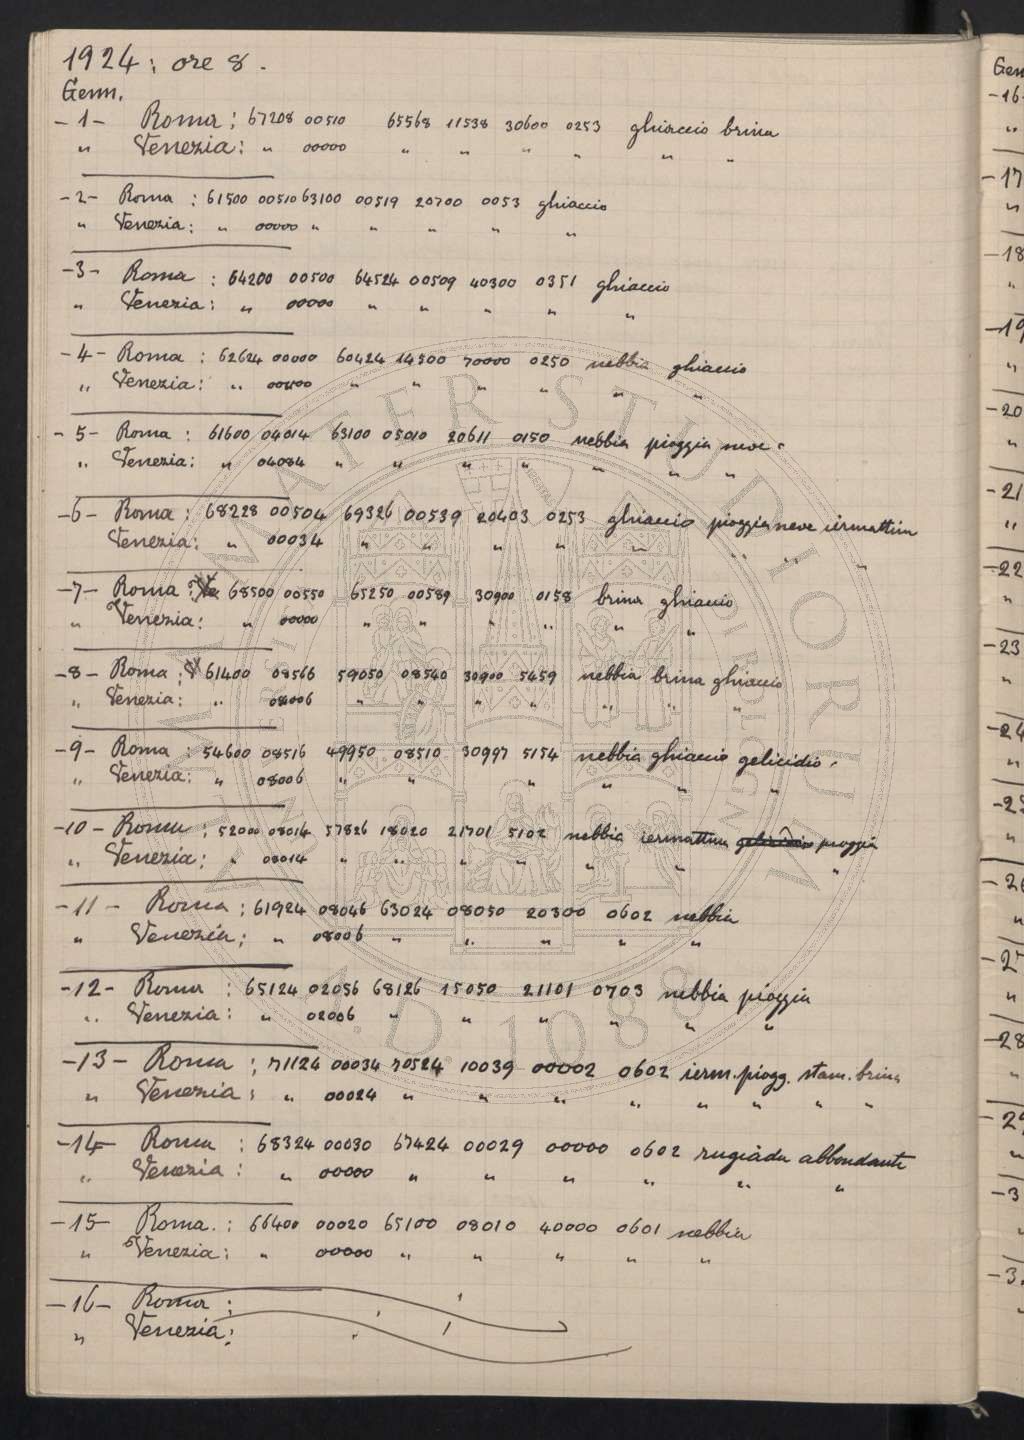 1924: ore 8.
Genn.
-1- Roma: 67208 00510 65568 11538 30600 0253 ghiaccio brina
" Venezia: " 00000 " " " " " "
-2- Roma: 61500 00510 63100 00519 20700 0053 ghiaccio
" Venezia: " 00000 " " " " "
-3- Roma: 64200 00500 64524 00509 40300 0351 ghiaccio
" Venezia: " 00000 " " " " "
-4- Roma: 62624 00000 60424 14500 70000 0250 nebbia ghiaccio
" Venezia: " 00400 " " " " " "
-5- Roma: 61600 04014 63100 05010 20611 0150 nebbia pioggia neve.
" Venezia: " 04084 " " " " " " "
-6- Roma: 68228 00504 69326 00539 20403 0253 ghiaccio pioggia neve iermattina
Venezia: " 00034 " " " " " " " "
-7- Roma: 68500 00550 65250 00589 30900 0158 brina ghiaccio
" Venezia: " 00000 " " " " " "
-8- Roma: 61400 08566 59050 08540 30900 5459 nebbia brina ghiaccio
" Venezia: " 08006 " " " " " " "
-9- Roma: 54600 08516 49950 08510 30997 5154 nebbia ghiaccio gelicidio.
" Venezia: " 08006 " " " " " "
-10- Roma: 52000 08014 57826 18020 21701 5102 nebbia iermattina gelicidio pioggia
" Venezia: " 08014 " " " " " " "
-11- Roma: 61924 08046 63024 08050 20300 0602 nebbia
" Venezia: " 08006 " " " " "
-12- Roma: 65124 02056 68126 15050 21101 0703 nebbia pioggia
" Venezia: " 02006 " " " " " "
-13- Roma: 71124 00034 70524 10039 00002 0602 ierm. piogg. stam. brina
" Venezia: " 00024 " " " " " " " "
-14- Roma: 68324 00030 67424 00029 00000 0602 rugiada abbondante
" Venezia: " 00000 " " " " " "
-15- Roma.: 66400 00020 65100 08010 40000 0601 nebbia
" Venezia: " 00000 " " " " "
-16- Roma:
" Venezia:
Gen
-16-
"
-17
"
-18
"
-19
"
-20
"
-21
"
-22
"
-23
"
-24
"
-25
"
-26
"
-27
"
-28
"
-29
"
-3
-3
ALMA MATER STUDIORUM
A.D. 1088